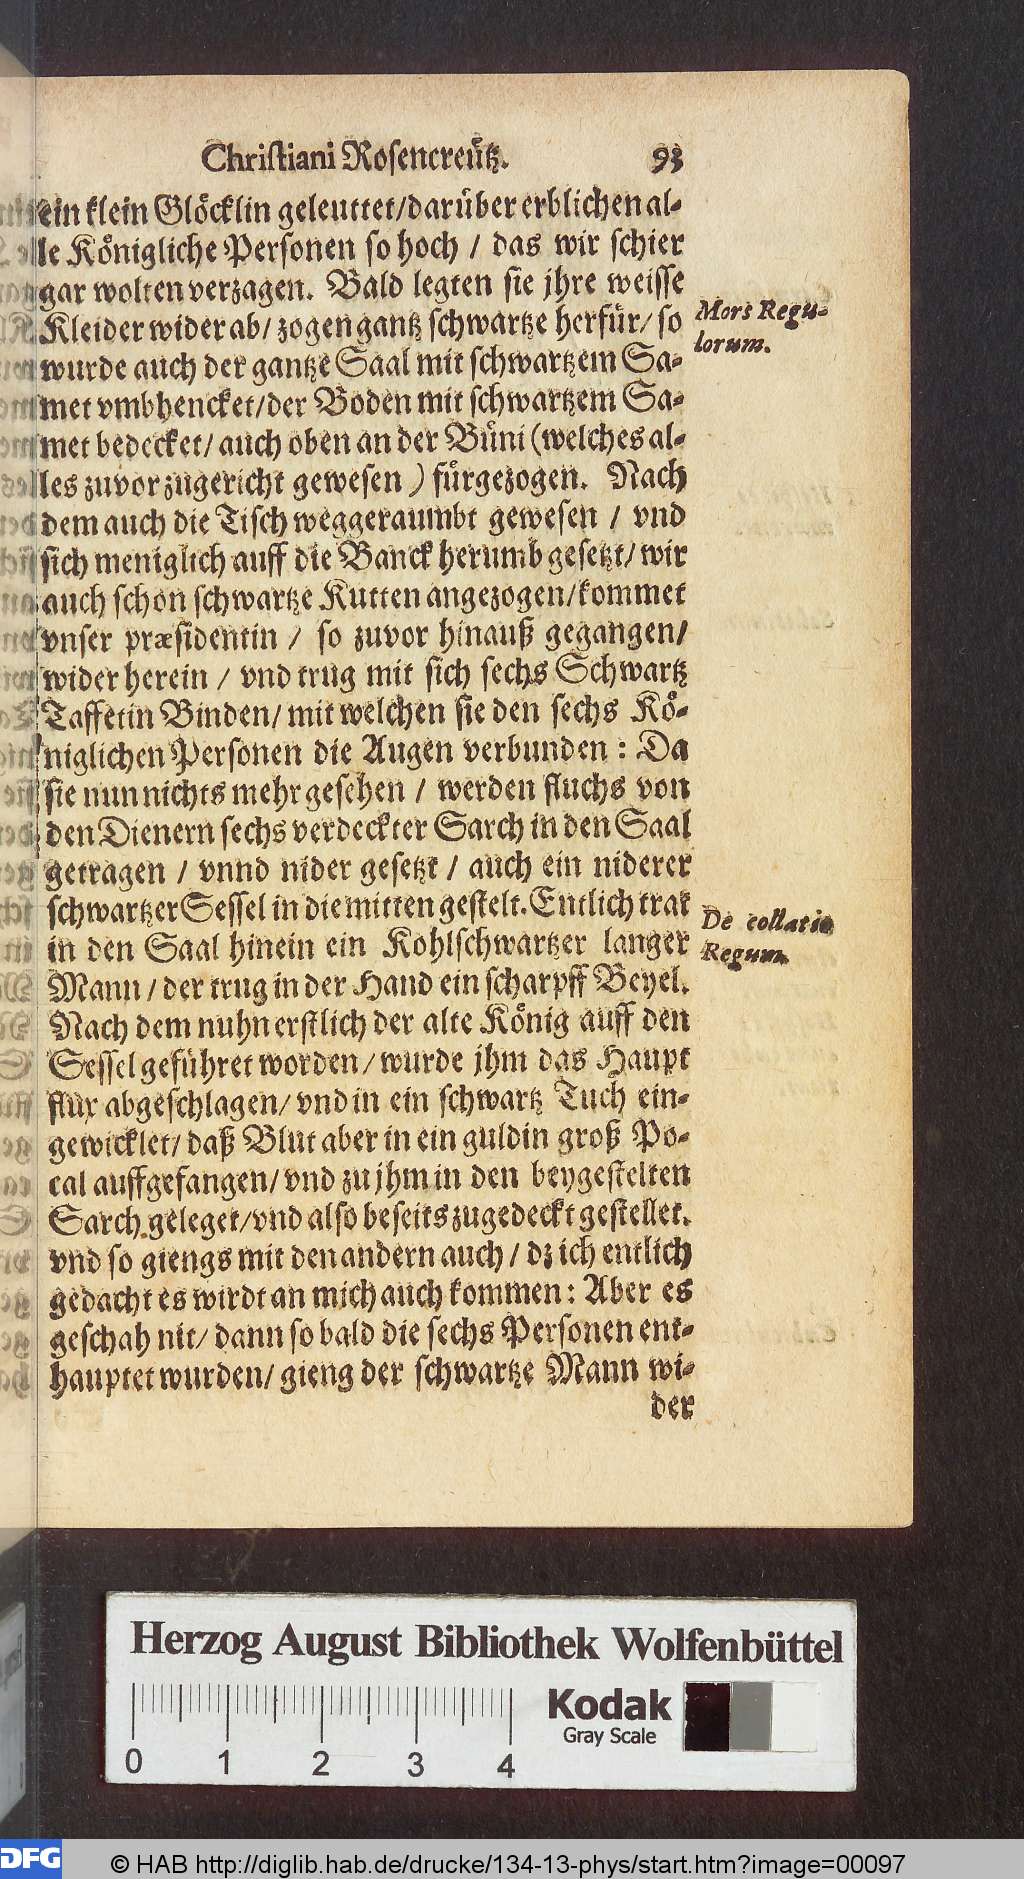 Christiani Rosencreütz. 93
ein klein Glöcklin geleuttet/darüber erblichen al-
le Königliche Personen so hoch / das wir schier
gar wolten verzagen. Bald legten sie jhre weisse
Kleider wider ab/ zogen gantz schwartze herfür/ so
wurde auch der gantze Saal mit schwartzem Sa-
met vmbhencket/der Boden mit schwartzem Sa-
met bedecket/ auch oben an der Büni (welches al-
les zuvor zugericht gewesen ) fürgezogen. Nach
dem auch die Tisch weggeraumbt gewesen / vnd
sich meniglich auff die Banck herumb gesetzt/ wir
auch schon schwartze Kutten angezogen/kommet
vnser præsidentin / so zuvor hinauß gegangen/
wider herein / vnd trug mit sich sechs Schwartz
Taffetin Binden/ mit welchen sie den sechs Kö-
niglichen Personen die Augen verbunden : Da
sie nun nichts mehr gesehen / werden fluchs von
den Dienern sechs verdeckter Sarch in den Saal
getragen / vnnd nider gesetzt / auch ein niderer
schwartzer Sessel in die mitten gestelt. Entlich trat
in den Saal hinein ein Kohlschwartzer langer
Mann / der trug in der Hand ein scharpff Beyel.
Nach dem nuhn erstlich der alte König auff den
Sessel geführet worden/ wurde jhm das Haupt
flux abgeschlagen/ vnd in ein schwartz Tuch ein-
gewicklet/ daß Blut aber in ein guldin groß Po-
cal auffgefangen/ vnd zu jhm in den beygestelten
Sarch geleget/vnd also beseits zugedeckt gestellet.
vnd so giengs mit den andern auch / dz ich entlich
gedacht es wirdt an mich auch kommen : Aber es
geschah nit/ dann so bald die sechs Personen ent-
hauptet wurden/ gieng der schwartze Mann wi-
der
Mors Regu-
lorum.
De collatio
Regum.
Herzog August Bibliothek Wolfenbüttel
Kodak
Gray Scale
0 1 2 3 4
DFG
© HAB http://diglib.hab.de/drucke/134-13-phys/start.htm?image=00097